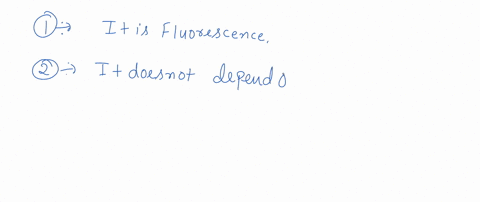 ① ÷> It is Fluorescence.
② ÷> It doesnot depends